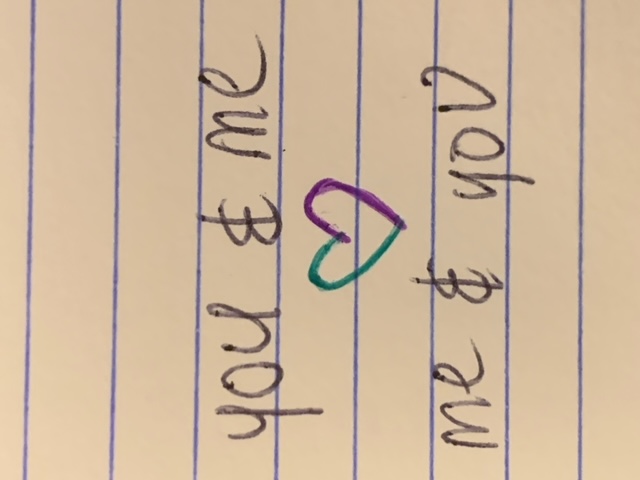 you & me
me & you